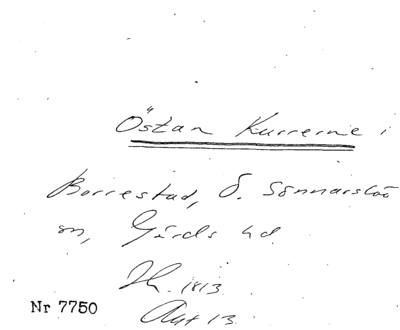 Östan Kurrerne i
Borrestad, Ö. Sönnarslöv
sn, Gärds hd
Jh. 1813
Aut 13
Nr 7750